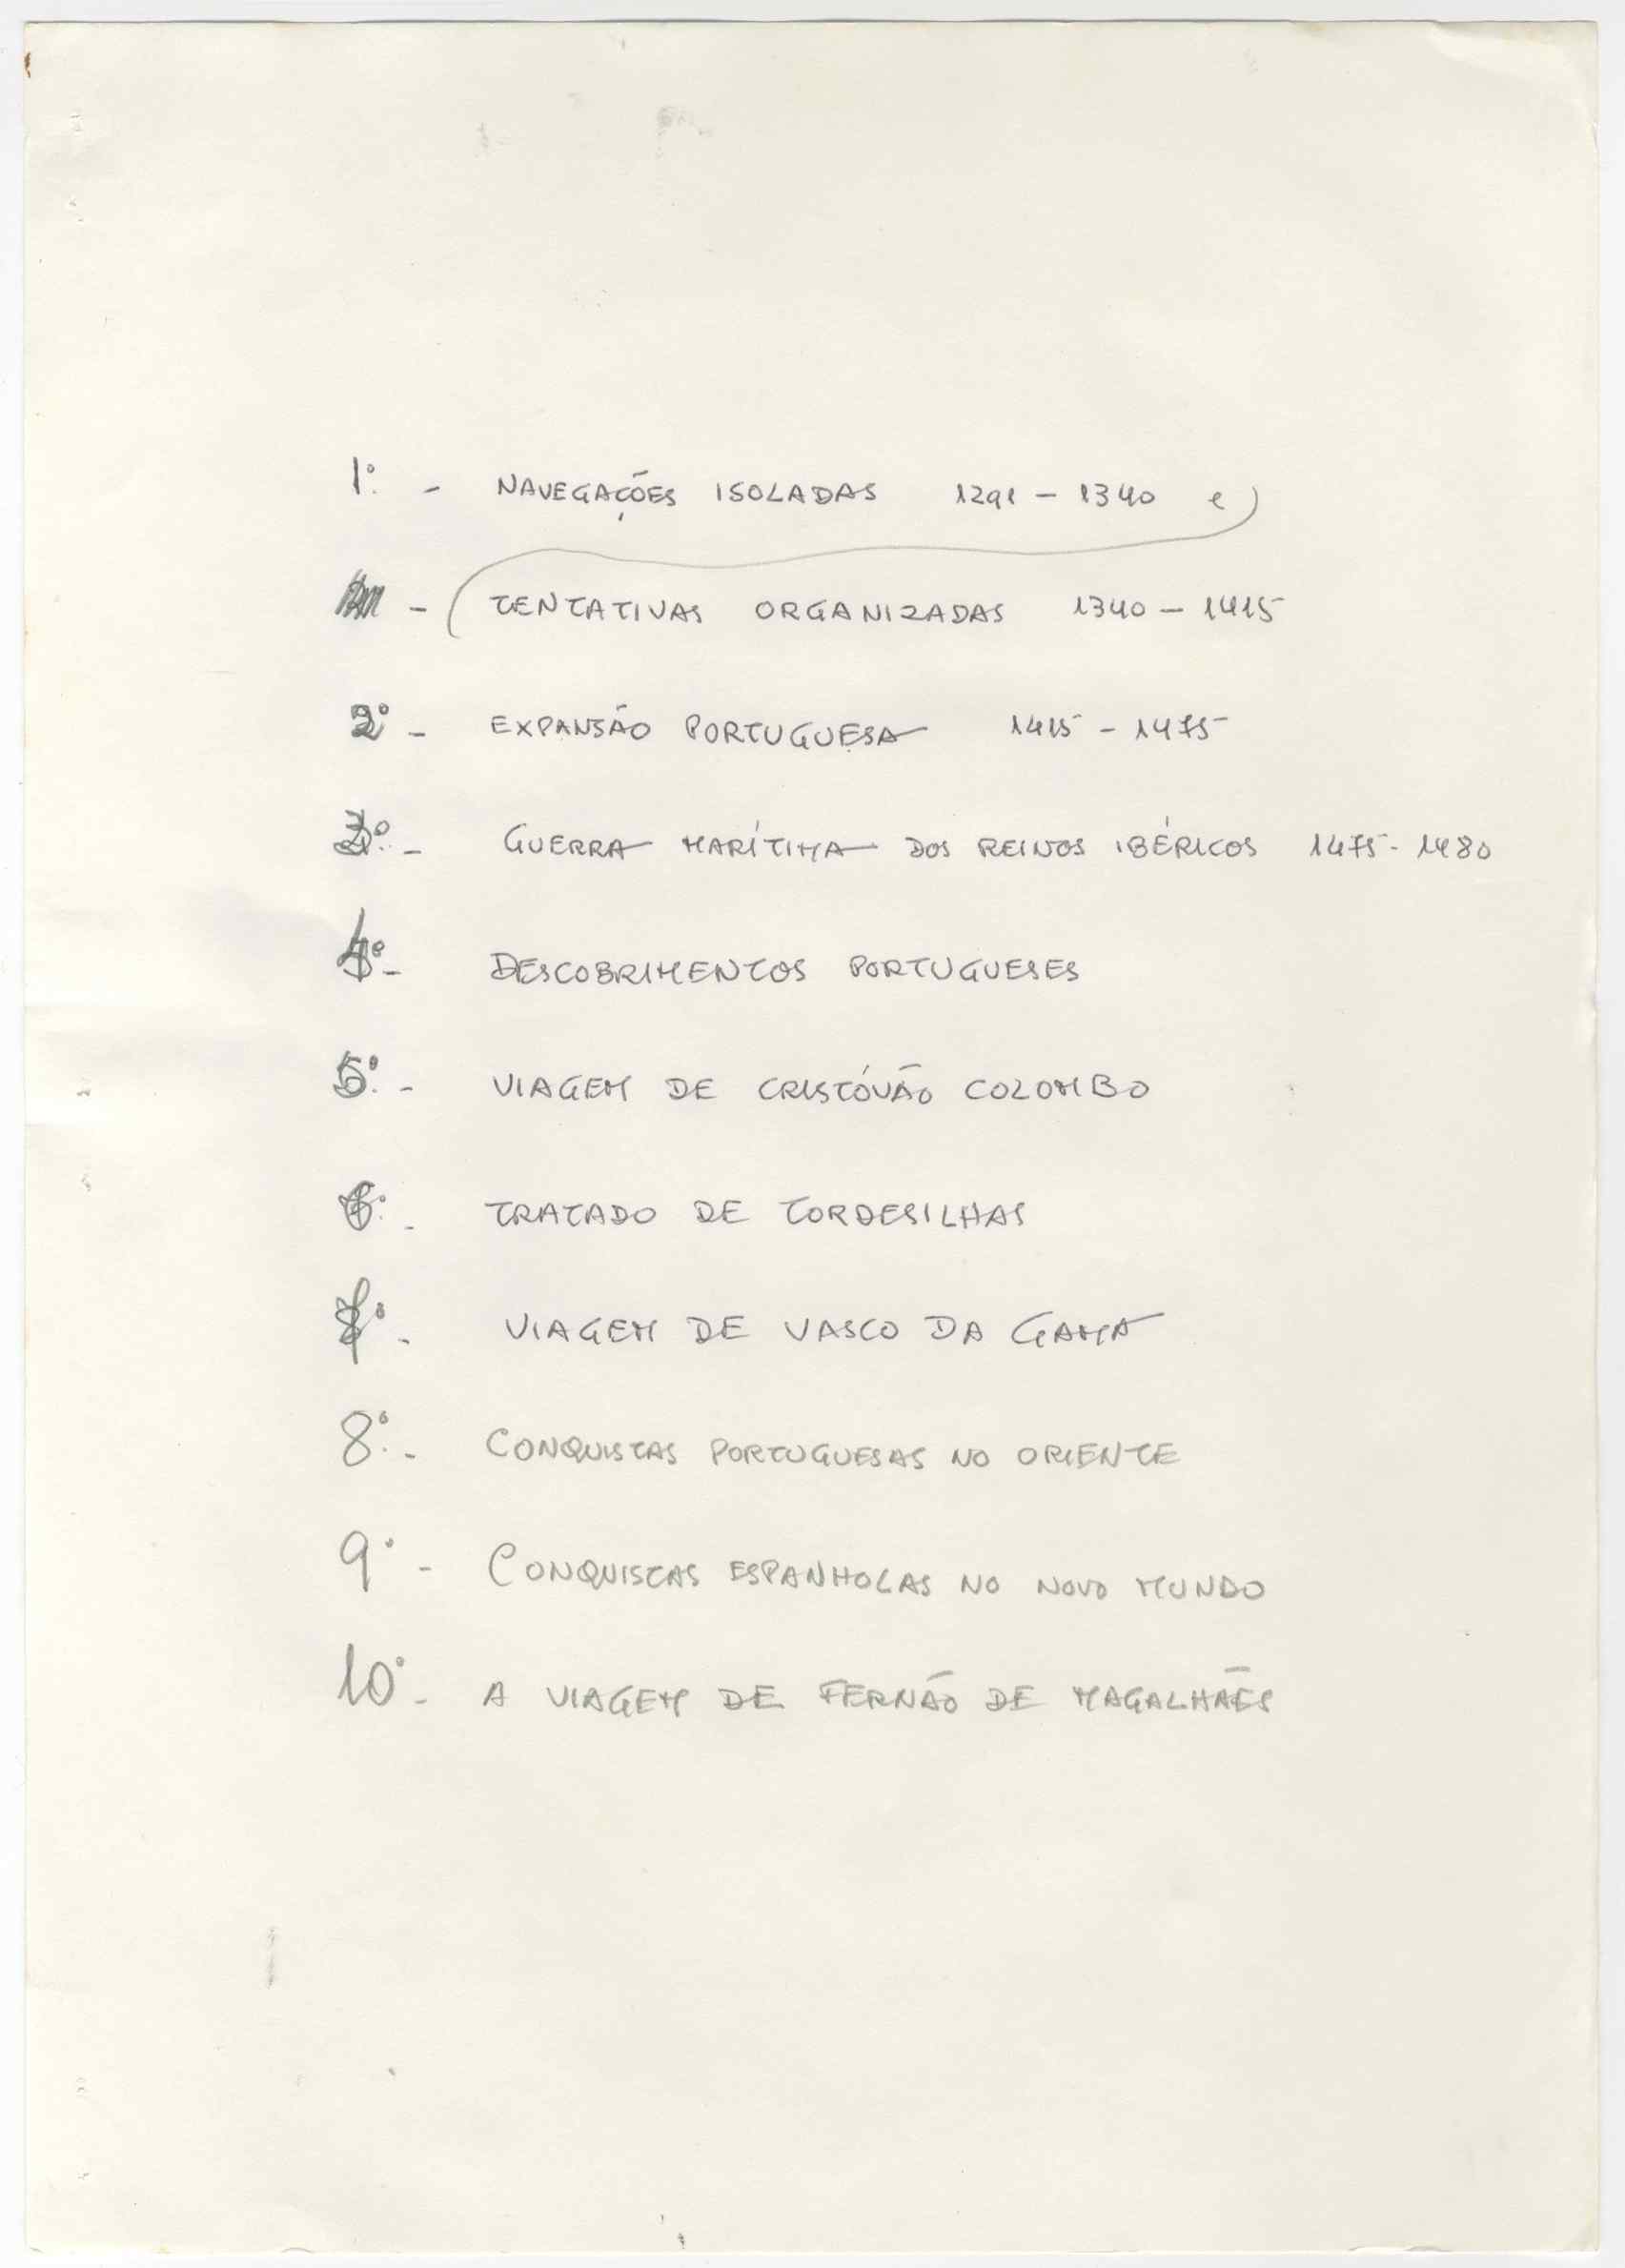 1º - NAVEGAÇÕES ISOLADAS 1291 - 1340 e
- TENTATIVAS ORGANIZADAS 1340 - 1415
2º - EXPANSÃO PORTUGUESA 1415 - 1475
3º - GUERRA MARÍTIMA DOS REINOS IBÉRICOS 1475 - 1480
4º - DESCOBRIMENTOS PORTUGUESES
5º - VIAGEM DE CRISTÓVÃO COLOMBO
6º - TRATADO DE TORDESILHAS
7º - VIAGEM DE VASCO DA GAMA
8º - CONQUISTAS PORTUGUESAS NO ORIENTE
9º - CONQUISTAS ESPANHOLAS NO NOVO MUNDO
10º - A VIAGEM DE FERNÃO DE MAGALHÃES